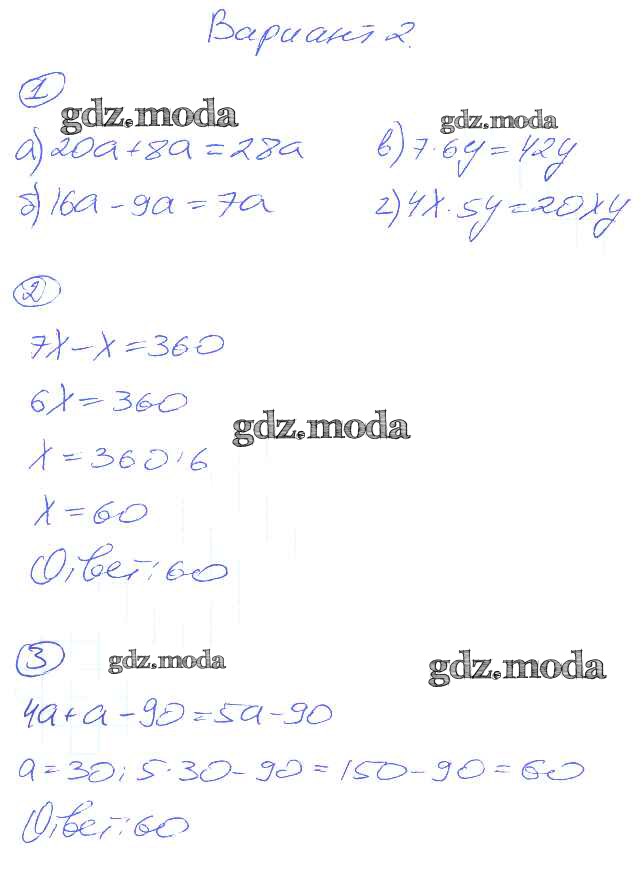 Вариант 2.
1
gdz.moda
gdz.moda
а) 20a+8a=28a
в) 7·6y=42y
б) 16a-9a=7a
г) 4x·5y=20xy
2
7x-x=360
6x=360
gdz.moda
x=360:6
x=60
Ответ: 60
3
gdz.moda
gdz.moda
4a+a-90=5a-90
a=30; 5·30-90=150-90=60
Ответ: 60